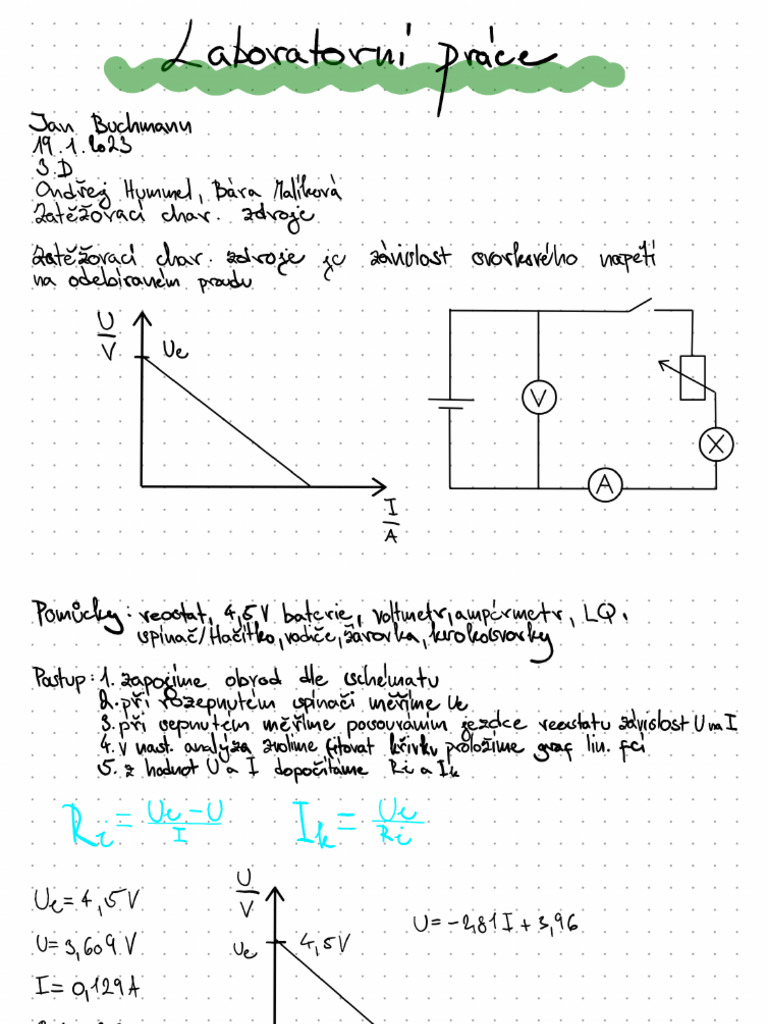 Laboratorní práce
Jan Buchmann
19.1.2023
3.D
Ondřej Hummel, Bára Malíková
Zatěžovací char. zdroje
Zatěžovací char. zdroje je závislost svorkového napětí
na odebíraném proudu
U
V
Ue
I
A
V
X
A
Pomůcky: reostat, 4,5V baterie, voltmetr, ampérmetr, LQ,
spínač/tlačítko, vodiče, žárovka, krokosvorky
Postup: 1. zapojíme obvod dle schématu
2. při rozepnutém spínači měříme Ue
3. při sepnutém měříme posouváním jezdce reostatu závislost U na I
4. v nast. analýza zvolíme fitovat křivku proložíme graf lin. fcí
5. z hodnot U a I dopočítáme Ri a Ik
Ri = Ue - U / I
Ik = Ue / Ri
Ue = 4,5V
U = 3,609V
I = 0,129A
U
V
Ue
4,5V
U = -2,81I + 3,96